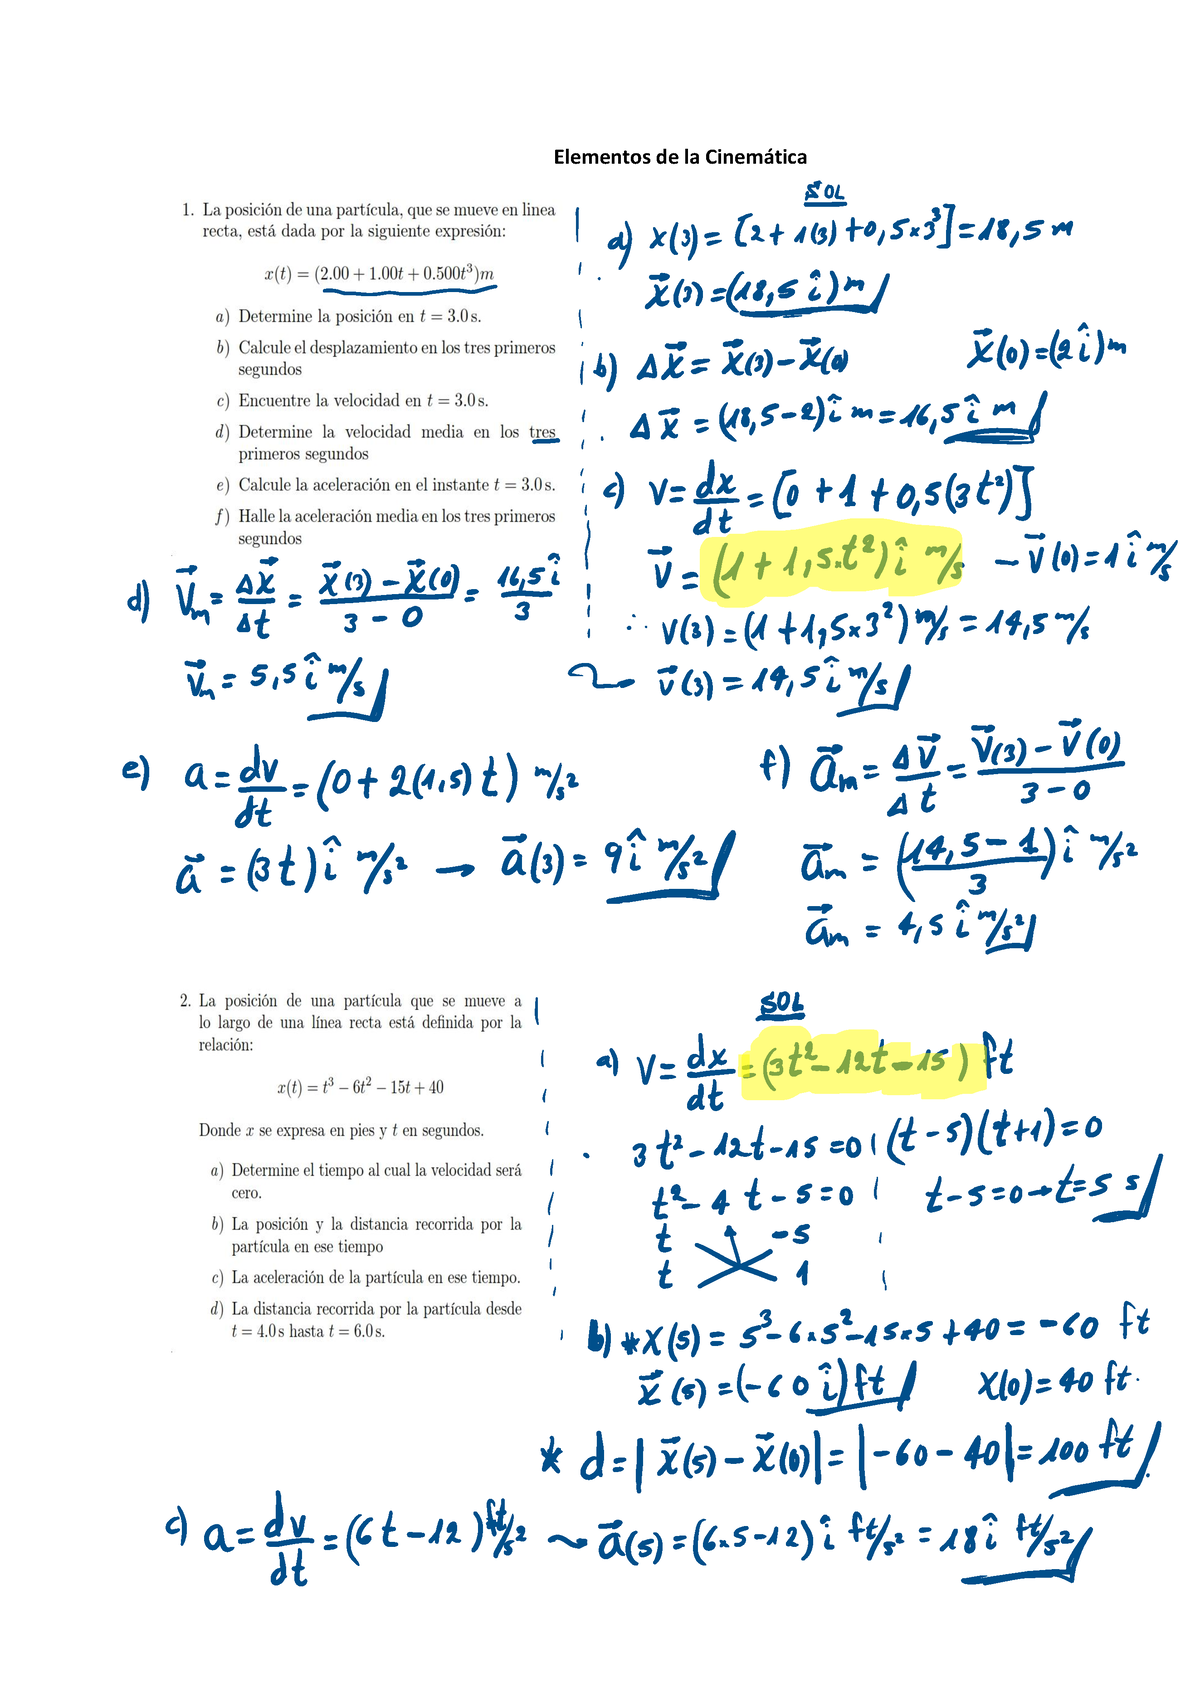 Elementos de la Cinemática
1. La posición de una partícula, que se mueve en linea
recta, está dada por la siguiente expresión:
x(t) = (2.00 + 1.00t + 0.500t³)m
a) Determine la posición en t = 3.0 s.
b) Calcule el desplazamiento en los tres primeros
segundos
c) Encuentre la velocidad en t = 3.0 s.
d) Determine la velocidad media en los tres
primeros segundos
e) Calcule la aceleración en el instante t = 3.0 s.
f) Halle la aceleración media en los tres primeros
segundos
SOL
a) x(3) = [2 + 1(3) + 0,5×3³] = 18,5 m
x⃗(3) = (18,5 î) m
b) Δx⃗ = x⃗(3) − x⃗(0)    x⃗(0) = (2 î) m
Δx⃗ = (18,5 − 2) î m = 16,5 î m
c) v = dx/dt = [0 + 1 + 0,5(3t²)]
v⃗ = (1 + 1,5×t²) î m/s − v⃗(0) = 1 î m/s
∴ v(3) = (1 + 1,5×3²) m/s = 14,5 m/s
v⃗(3) = 14,5 î m/s
d) v⃗m = Δx⃗/Δt = (x⃗(3) − x⃗(0))/(3 − 0) = 16,5 î/3
v⃗m = 5,5 î m/s
e) a = dv/dt = (0 + 2(1,5) t) m/s²
a⃗ = (3t) î m/s² → a⃗(3) = 9 î m/s²
f) a⃗m = Δv⃗/Δt = (v⃗(3) − v⃗(0))/(3 − 0)
a⃗m = ((14,5 − 1)/3) î m/s²
a⃗m = 4,5 î m/s²
2. La posición de una partícula que se mueve a
lo largo de una línea recta está definida por la
relación:
x(t) = t³ − 6t² − 15t + 40
Donde x se expresa en pies y t en segundos.
a) Determine el tiempo al cual la velocidad será
cero.
b) La posición y la distancia recorrida por la
partícula en ese tiempo
c) La aceleración de la partícula en ese tiempo.
d) La distancia recorrida por la partícula desde
t = 4.0 s hasta t = 6.0 s.
SOL
a) v = dx/dt = (3t² − 12t − 15) ft
3t² − 12t − 15 = 0 | (t − 5)(t + 1) = 0
t² − 4t − 5 = 0 | t − 5 = 0 → t = 5 s
t −5
t 1
b) * x(5) = 5³ − 6×5² − 15×5 + 40 = −60 ft
x⃗(5) = (−60 î) ft    x(0) = 40 ft.
* d = |x⃗(5) − x⃗(0)| = |−60 − 40| = 100 ft
c) a = dv/dt = (6t − 12) ft/s² ~ a⃗(5) = (6×5 − 12) î ft/s² = 18 î ft/s²